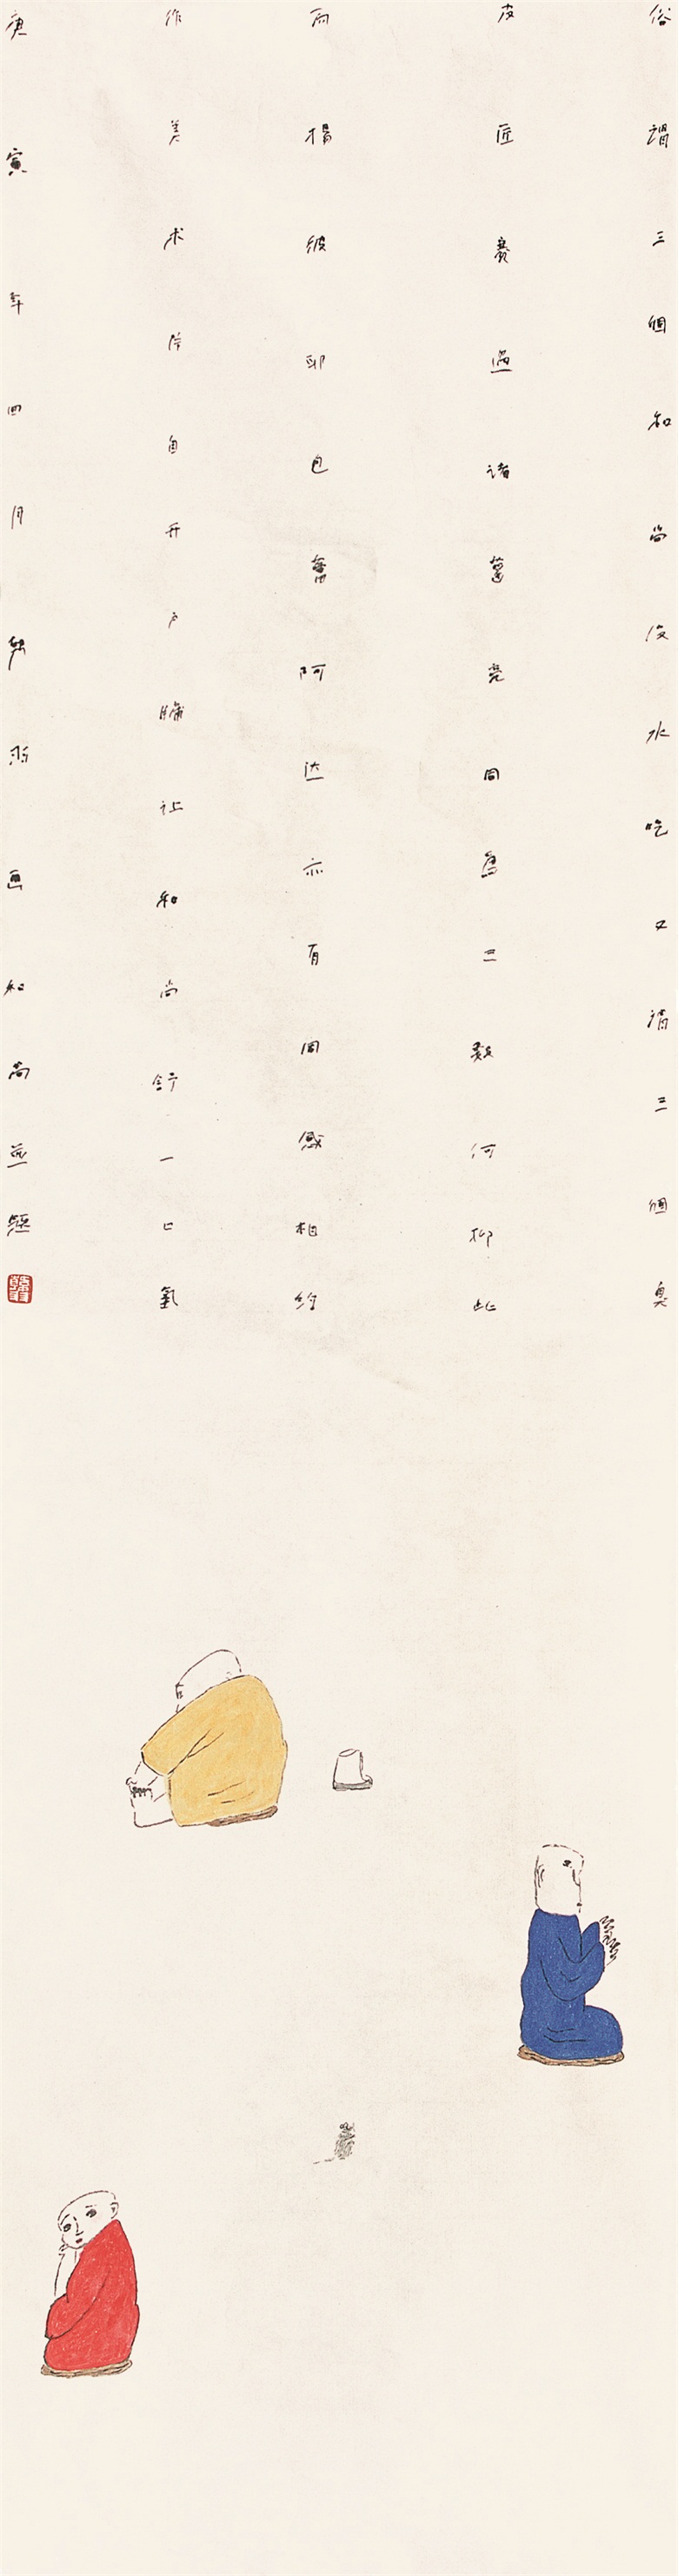 俗謂三個和尚没水吃又謂三個臭
皮匠賽過諸葛亮同爲三數何抑此
而揚彼耶包奮阿达亦有同感相约
作美术片自开户牖让和尚舒一口氣
庚寅年四月韩羽画和尚並題